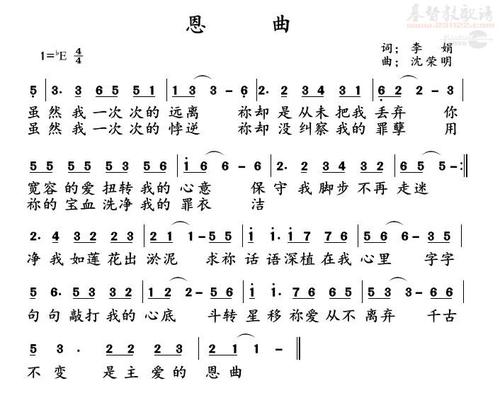 恩 曲
基督教歌谱
1=♭E 4/4
词：李 娟
曲：沈荣明
5 3. 3 6 5 5 1 1 3 3 - 6 2. 2 1 2 3 3 2 1 6 2 2 - 5
虽然我一次次的远离 祢却是从未把我丢弃 你
虽然我一次次的悖逆 祢却没纠察我的罪孽 用
5 5 5 5 5 3 5 6 1 6 6 - 6 2. 2 3 2 1 2 7 6 5 5 -
宽容的爱扭转我的心意 保守我脚步不再走迷
祢的宝血洗净我的罪衣 洁
2. 4 3 2 2 3 2 1 1 - 5 5 1. 1 7 6 1 7 6 5 6 6 - 6 5
净我如莲花出淤泥 求祢话语深植在我心里 字字
句句敲打我的心底 斗转星移祢爱从不离弃 千古
5 3. 3 2 2 2 3 2 1 1 -
不变 是主爱的恩曲